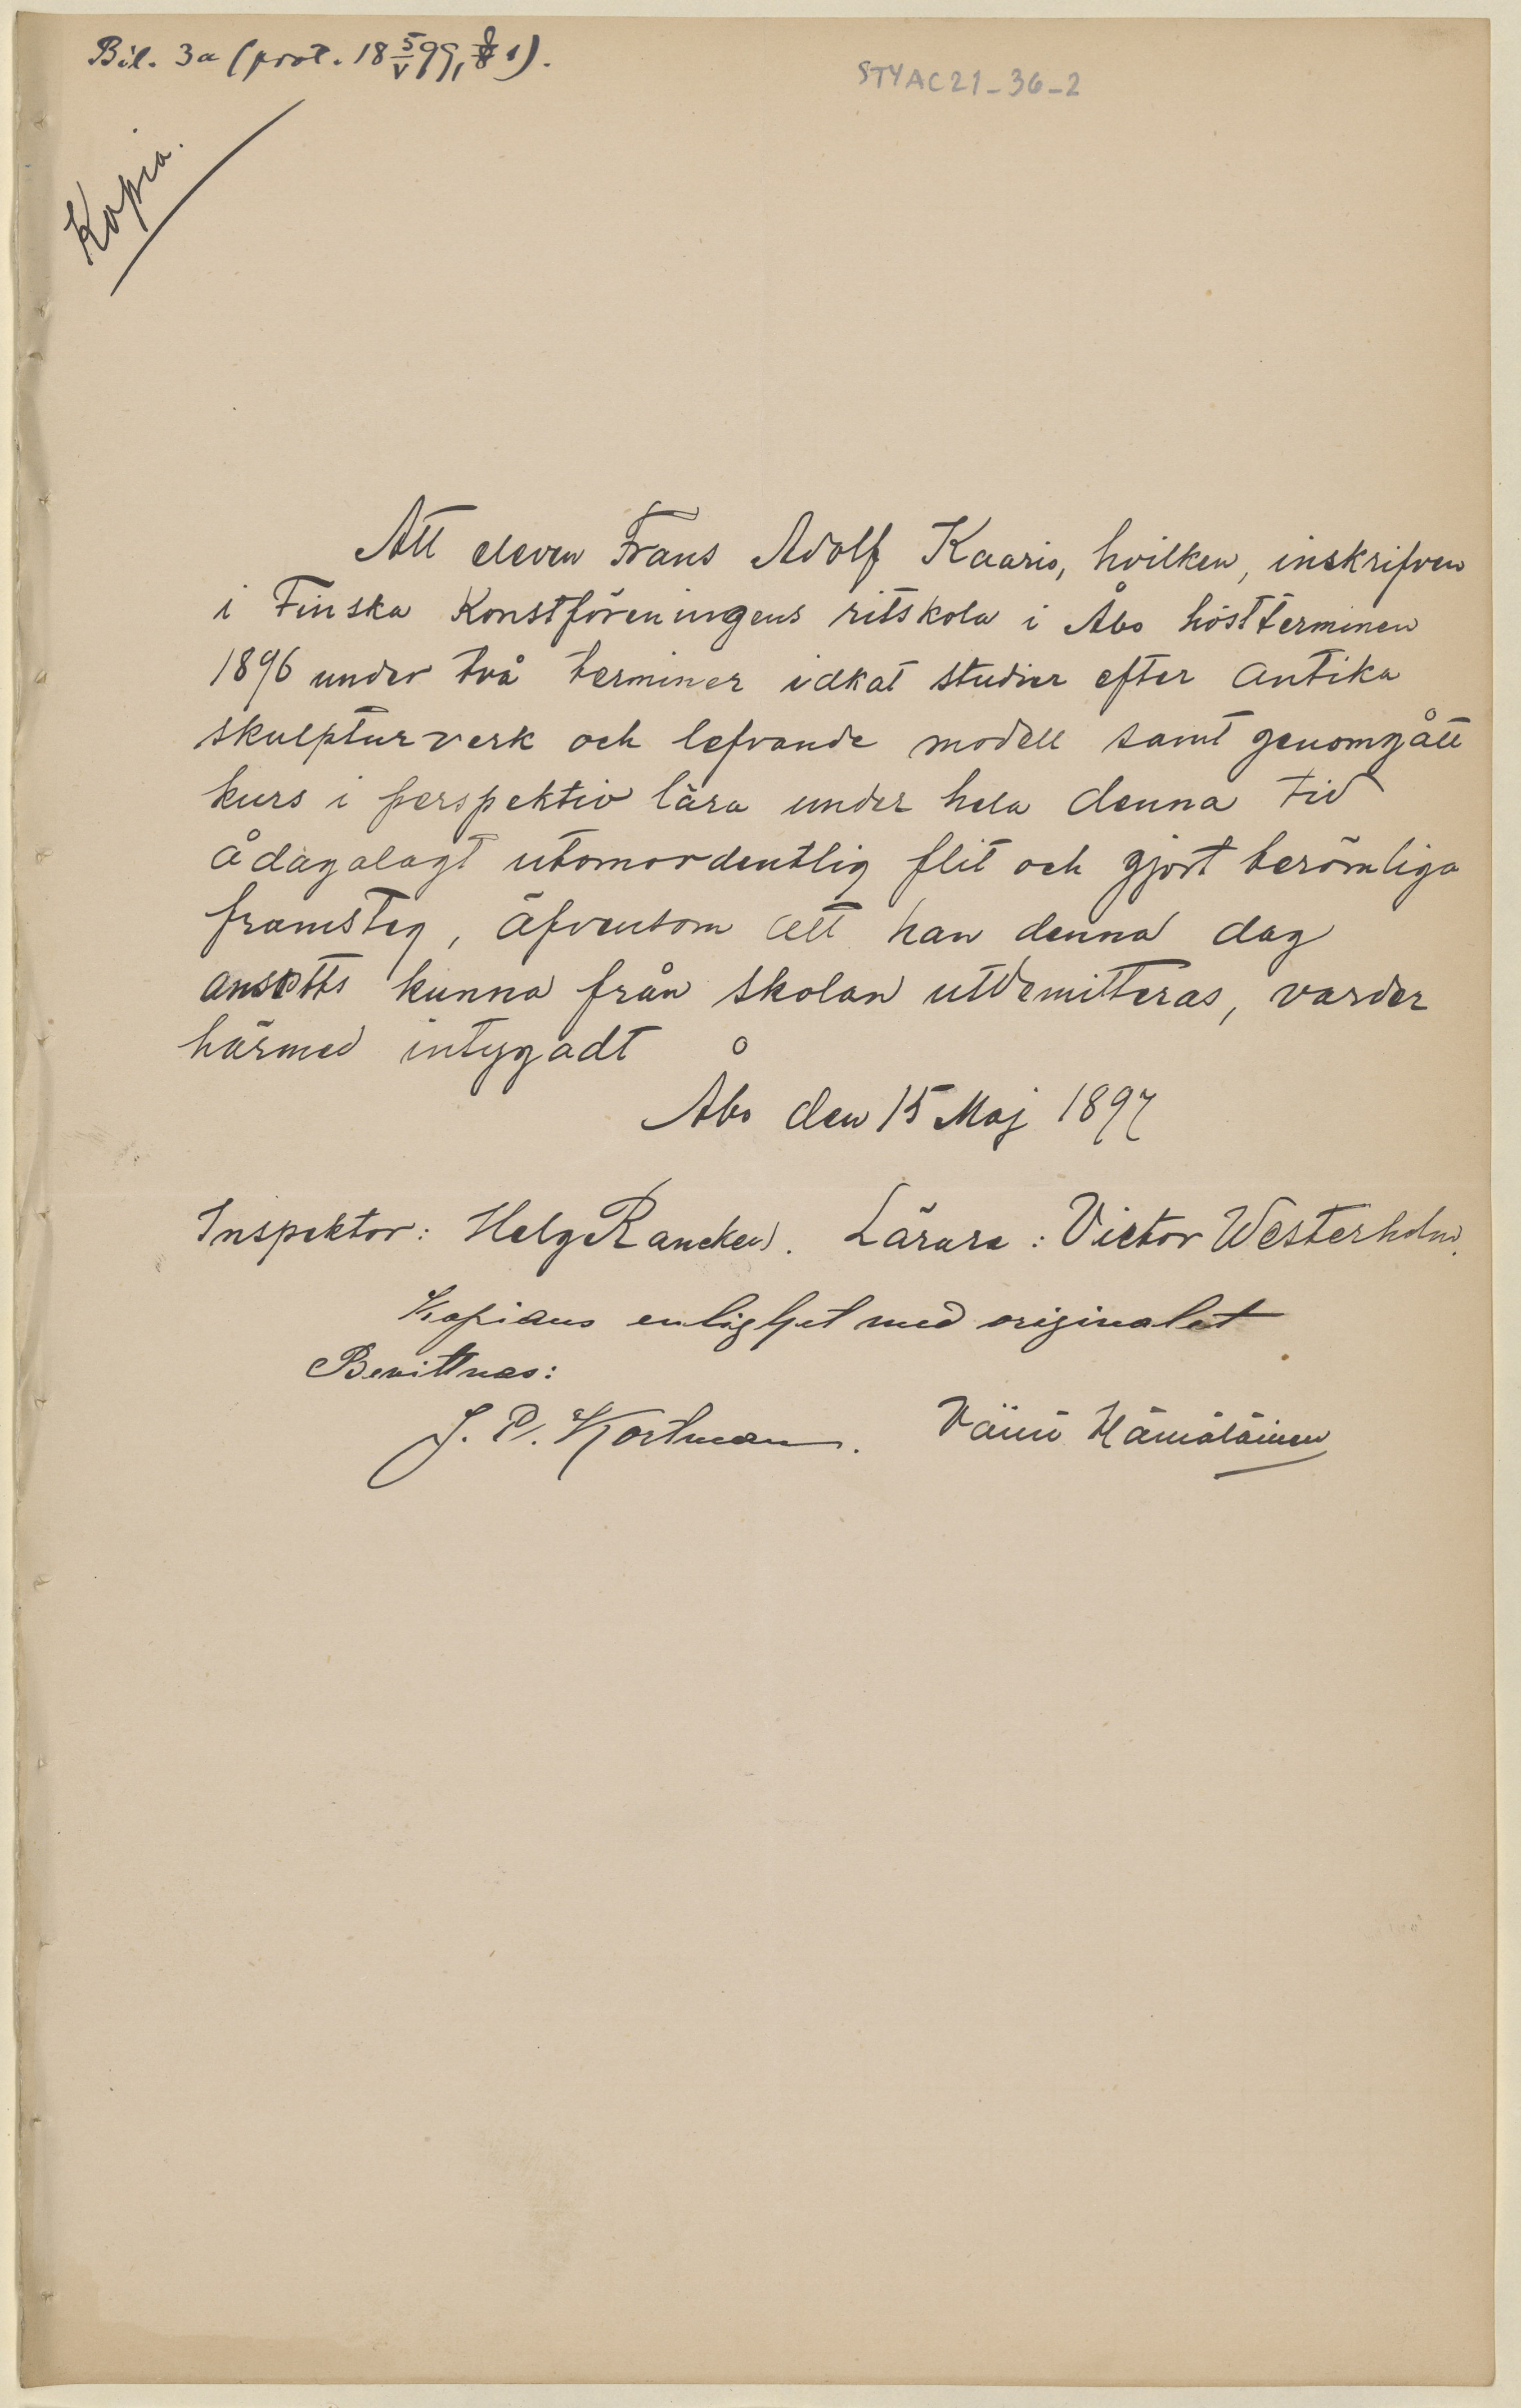 Bil. 3a (prot. 18 5/V 99, § 1).
STYAC21-36-2
Kopia.
Att eleven Frans Adolf Kaario, hvilken, inskrifven
i Finska Konstföreningens ritskola i Åbo höstterminen
1896 under två terminer idkat studier efter antika
skulpturverk och lefvande modell samt genomgått
kurs i perspektiv lära under hela denna tid
ådagalagt utomordentlig flit och gjort berömliga
framsteg, äfvensom att han denna dag
ansetts kunna från skolan utdemitteras, varder
härmed intygadt
Åbo den 15 Maj 1897
Inspektor: Helge Rancken. Lärare: Victor Westerholm.
Kopians enlighet med originalet
Bevittnas:
J. P. Kortman. Väinö Hämäläinen